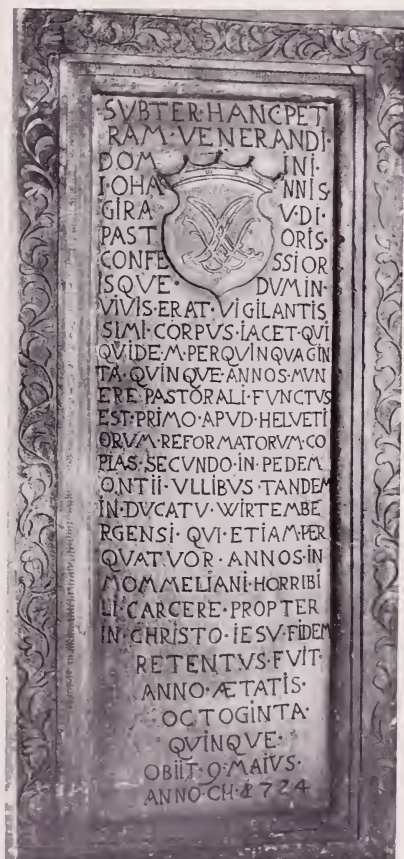 SVBTER·HANC PET
RAM·VENERANDI·
DOM INI·
IOHA NNIS
GIRA V·DI·
PAST ORIS·
CONFE SSIOR
ISQVE· DVM IN·
VIVIS·ERAT·VIGILANTIS
SIMI·CORPVS·IACET·QVI
QVIDE·M·PERQVINQVAGIN
TA·QVINQVE·ANNOS·MVN
ERE·PASTORALI·FVNCTVS
EST·PRIMO·APVD·HELVETI
ORVM·REFORMATORVM·CO
PIAS·SECVNDO·IN·PEDEM
ONTII·VLLIBVS·TANDEM
IN·DVCATV·WIRTEMBE
RGENSI·QVI·ETIAM·PER
QVATVOR·ANNOS·IN
MOMMELIANI·HORRIBI
LI·CARCERE·PROPTER
IN·CHRISTO·IESV·FIDEM
RETENTVS·FVIT·
ANNO·ÆTATIS·
OCTOGINTA·
QVINQVE·
OBIIT·9·MAIVS·
ANNO·CH·1724